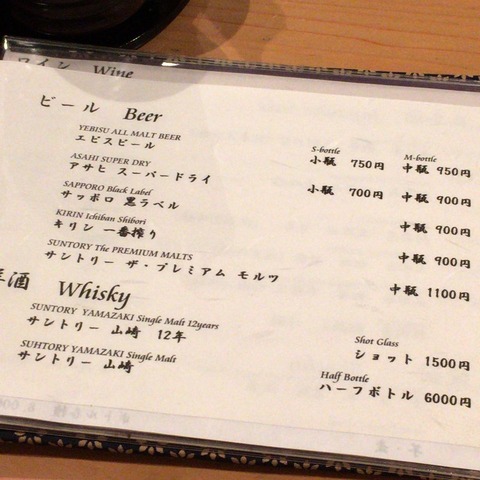 ワイン Wine
ビール Beer
YEBISU ALL MALT BEER
エビスビール
S-bottle M-bottle
小瓶 750円 中瓶 950円
ASAHI SUPER DRY
アサヒ スーパードライ 小瓶 700円 中瓶 900円
SAPPORO Black Label
サッポロ 黒ラベル 中瓶 900円
KIRIN Ichiban Shibori
キリン 一番搾り 中瓶 900円
SUNTORY The PREMIUM MALTS
サントリー ザ・プレミアム モルツ 中瓶 1100円
洋酒 Whisky
SUNTORY YAMAZAKI Single Malt 12years
サントリー 山崎 12年
Shot Glass
ショット 1500円
SUHTORY YAMAZAKI Single Malt
サントリー 山崎
Half Bottle
ハーフボトル 6000円